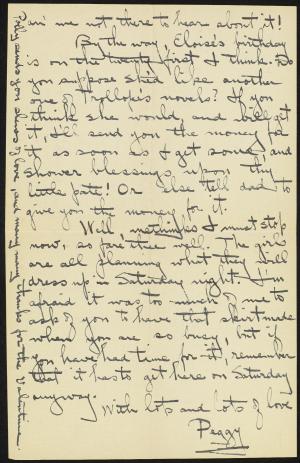 an' me not there to hear about it!
By the way, Eloise's birthday
is on the twenty first I think. Do
you suppose she'd like another
one of Trollope's novels? If you
think she would, and will get
it, I'll send you the money for
it as soon as I get some and
shower blessings upon thy
little pate! Or else tell dad to
give you the money for it.
Well, I must stop
now, so fare thee well. The girls
are all planning what they will
dress up in Saturday night. I'm
afraid it was too much of me to
ask of you to have that skirt made
when you are so busy, but if
you have had time for it, remember
that it has to get here on Saturday
anyway.
With lots and lots of love
Peggy
sends you oceans of love, and many many thanks for the Valentine.